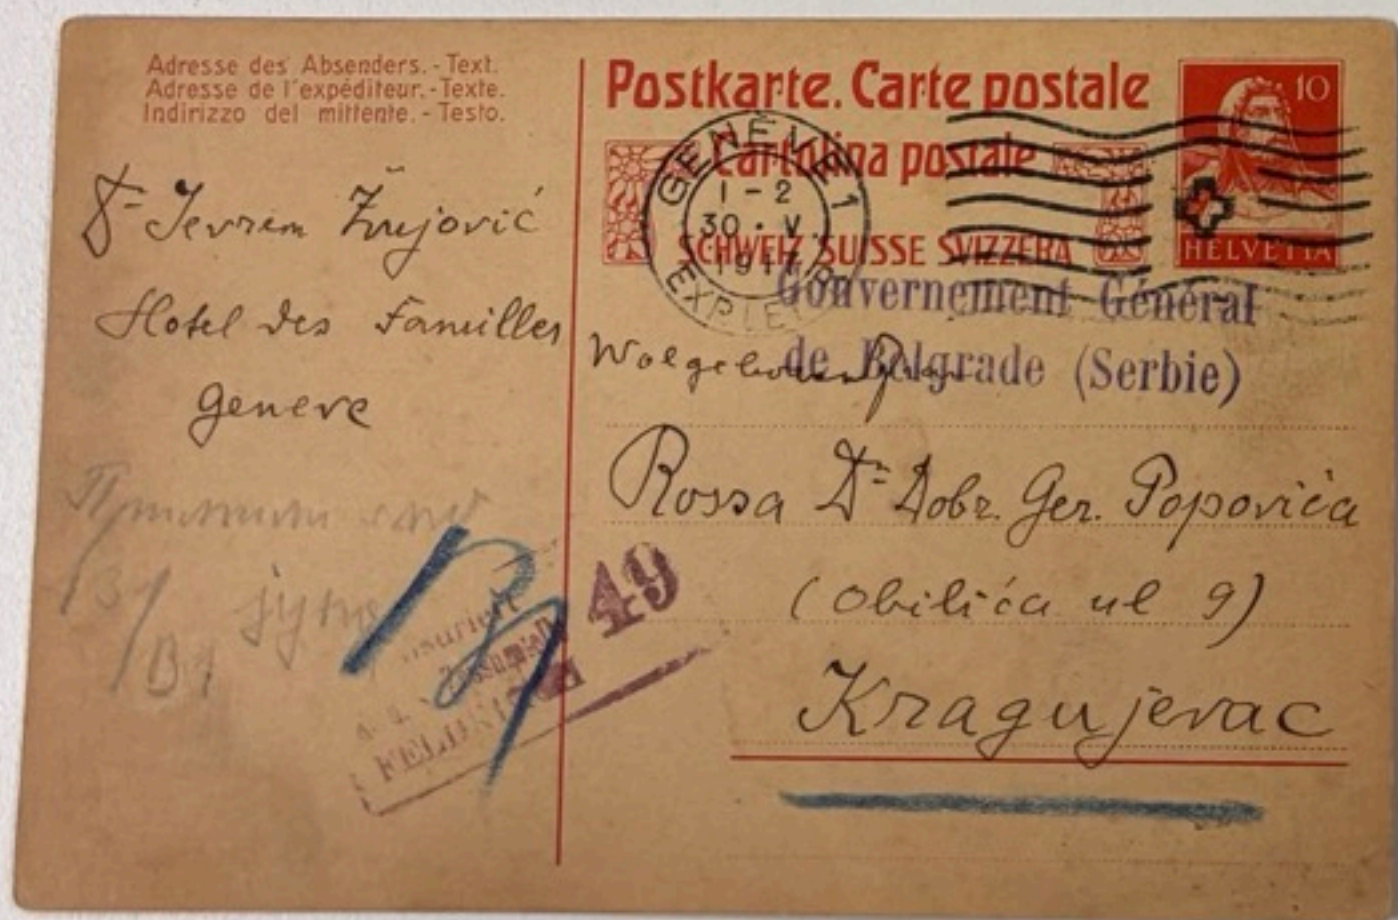 Adresse des Absenders. - Text.
Adresse de l'expéditeur. - Texte.
Indirizzo del mittente. - Testo.
Dr Jevrem Žujović
Hotel des Familles
Geneve
Postkarte. Carte postale
Cartolina postale
SCHWEIZ SUISSE SVIZZERA
10
HELVETIA
GENÈVE 1
1-2
30. V.
1917
Gouvernement Général
de Belgrade (Serbie)
Rossa Dr Dobr. Ger. Popovića
(Obilića ul 9)
Kragujevac
49